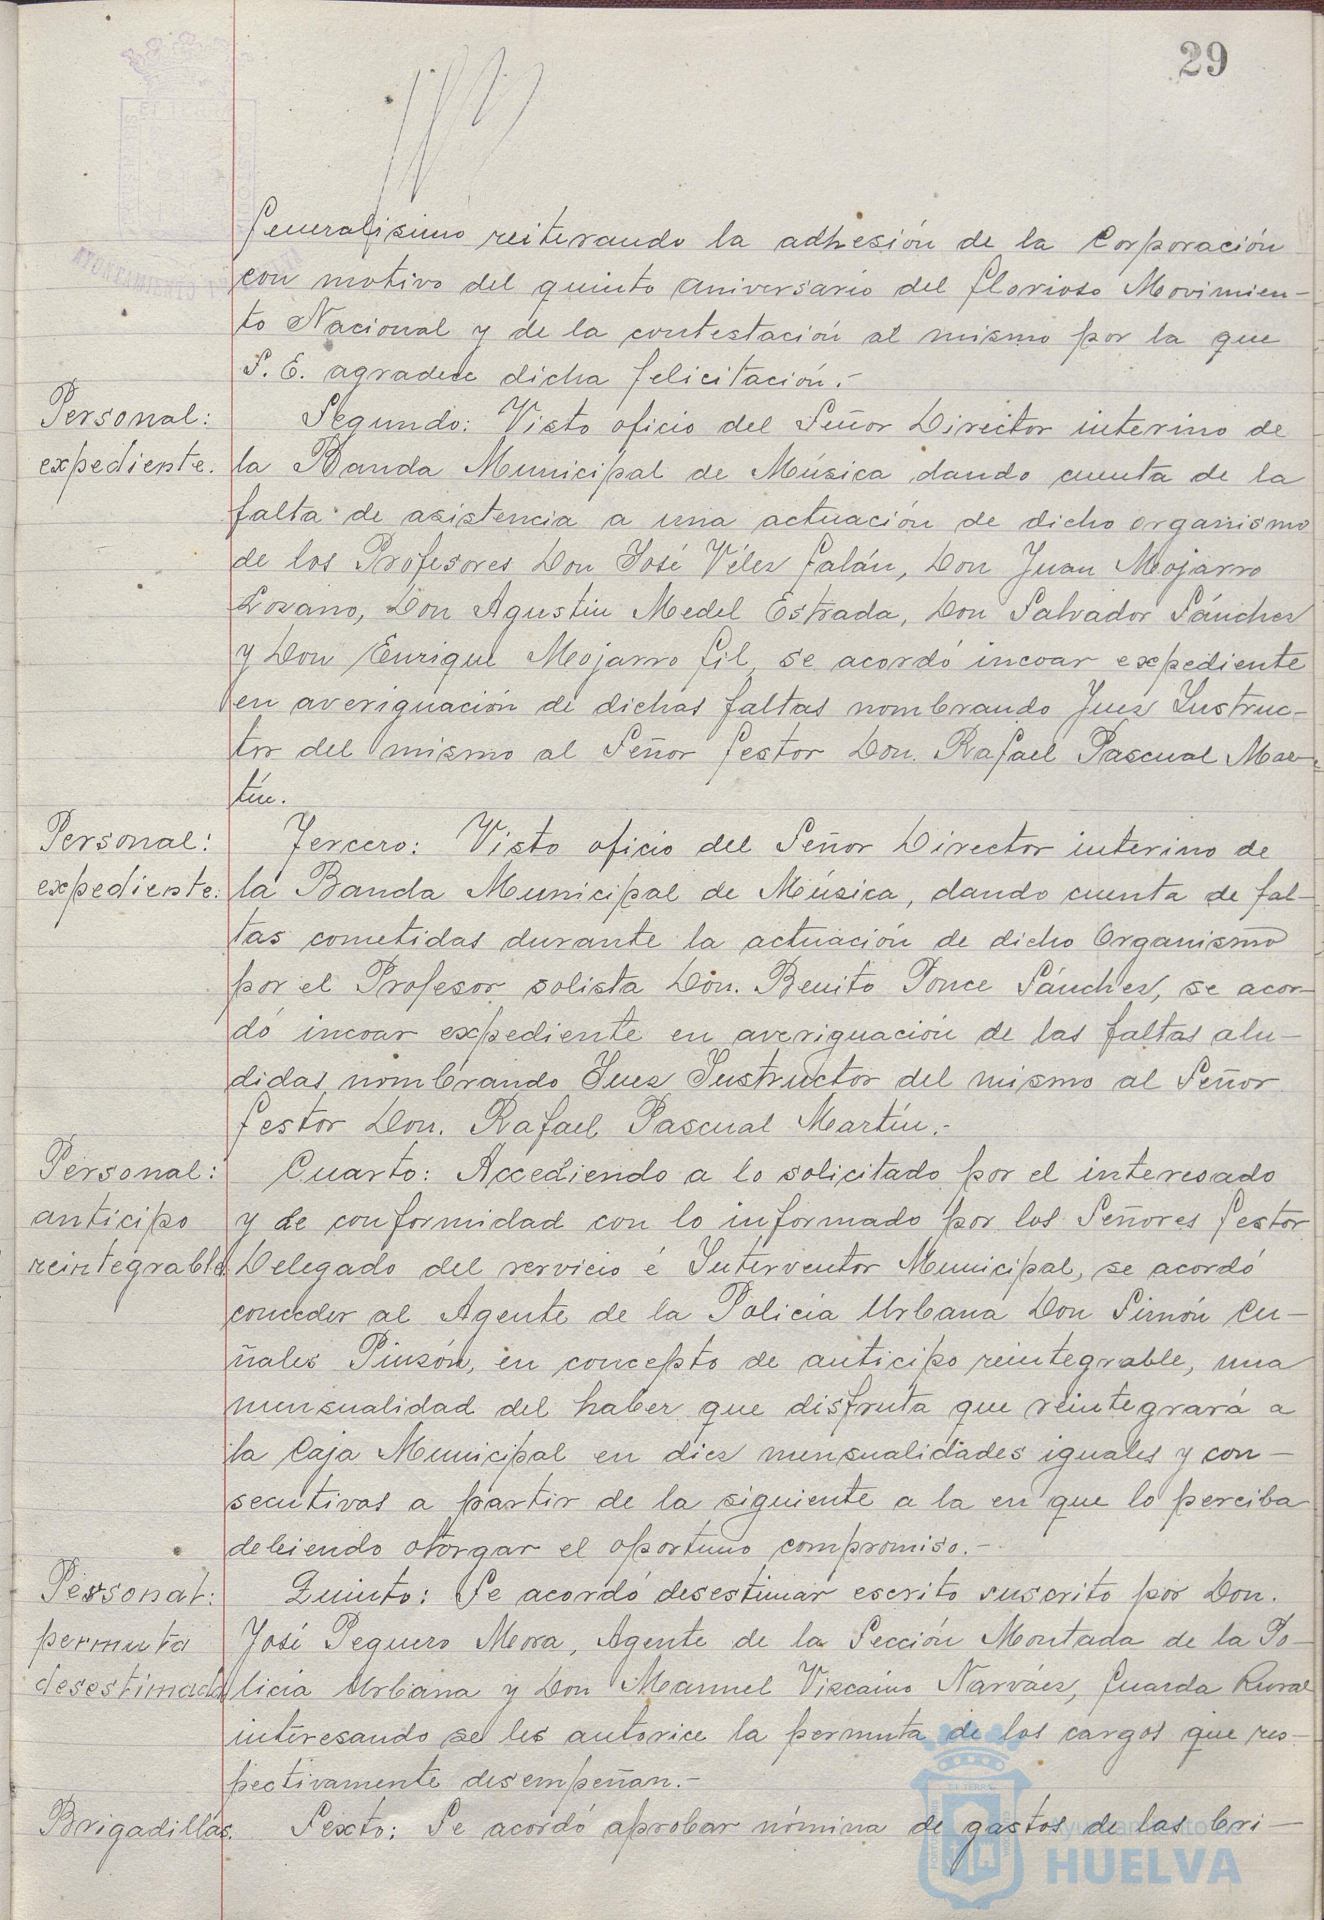 29
Generalisimo reiterando la adhesión de la Corporación
con motivo del quinto aniversario del Glorioso Movimien-
to Nacional y de la contestación al mismo por la que
S. E. agradece dicha felicitación.-
Personal:
expediente.
Segundo: Visto oficio del Señor Director interino de
la Banda Municipal de Musica dando cuenta de la
falta de asistencia a una actuación de dicho organismo
de los Profesores Don José Vélez Galán, Don Juan Mojarro
Lozano, Don Agustin Medel Estrada, Don Salvador Sánchez
y Don Enrique Mojarro Gil, se acordó incoar expediente
en averiguación de dichas faltas nombrando Juez Instruc-
tor del mismo al Señor Gestor Don. Rafael Pascual Mar-
tín.
Personal:
expediente.
Tercero: Visto oficio del Señor Director interino de
la Banda Municipal de Música, dando cuenta de fal-
tas cometidas durante la actuación de dicho Organismo
por el Profesor solista Don. Benito Ponce Sánchez, se acor-
dó incoar expediente en averiguación de las faltas alu-
didas nombrando Juez Instructor del mismo al Señor
Gestor Don. Rafael Pascual Martín.-
Personal:
anticipo
reintegrable
Cuarto: Accediendo a lo solicitado por el interesado
y de conformidad con lo informado por los Señores Gestor
Delegado del servicio é Interventor Municipal, se acordó
conceder al Agente de la Policía Urbana Don Simón Cu-
ñales Pinzón, en concepto de anticipo reintegrable, una
mensualidad del haber que disfruta que reintegrará a
la Caja Municipal en diez mensualidades iguales y con-
secutivas a partir de la siguiente a la en que lo perciba
debiendo otorgar el oportuno compromiso.-
Personal:
permuta
desestimada
Quinto: Se acordó desestimar escrito suscrito por Don.
José Peguero Mora, Agente de la Sección Montada de la Po-
licía Urbana y Don Manuel Vizcaíno Narváez, Guarda Rural
interesando se les autorice la permuta de los cargos que res-
pectivamente desempeñan.-
Brigadillas.
Sexto: Se acordó aprobar nómina de gastos de las bri-
Ayuntamiento de
HUELVA